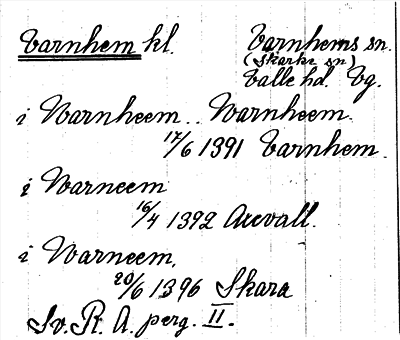 Varnhem kl. Varnhems sn.
(Skarke sn)
Valle hd. Vg.
i Warnheem .. Warnheem.
17/6 1391 Varnhem.
i Warneem
16/4 1392 Axevall.
i Warneem,
20/6 1396 Skara
Sv. R. A. perg. II.